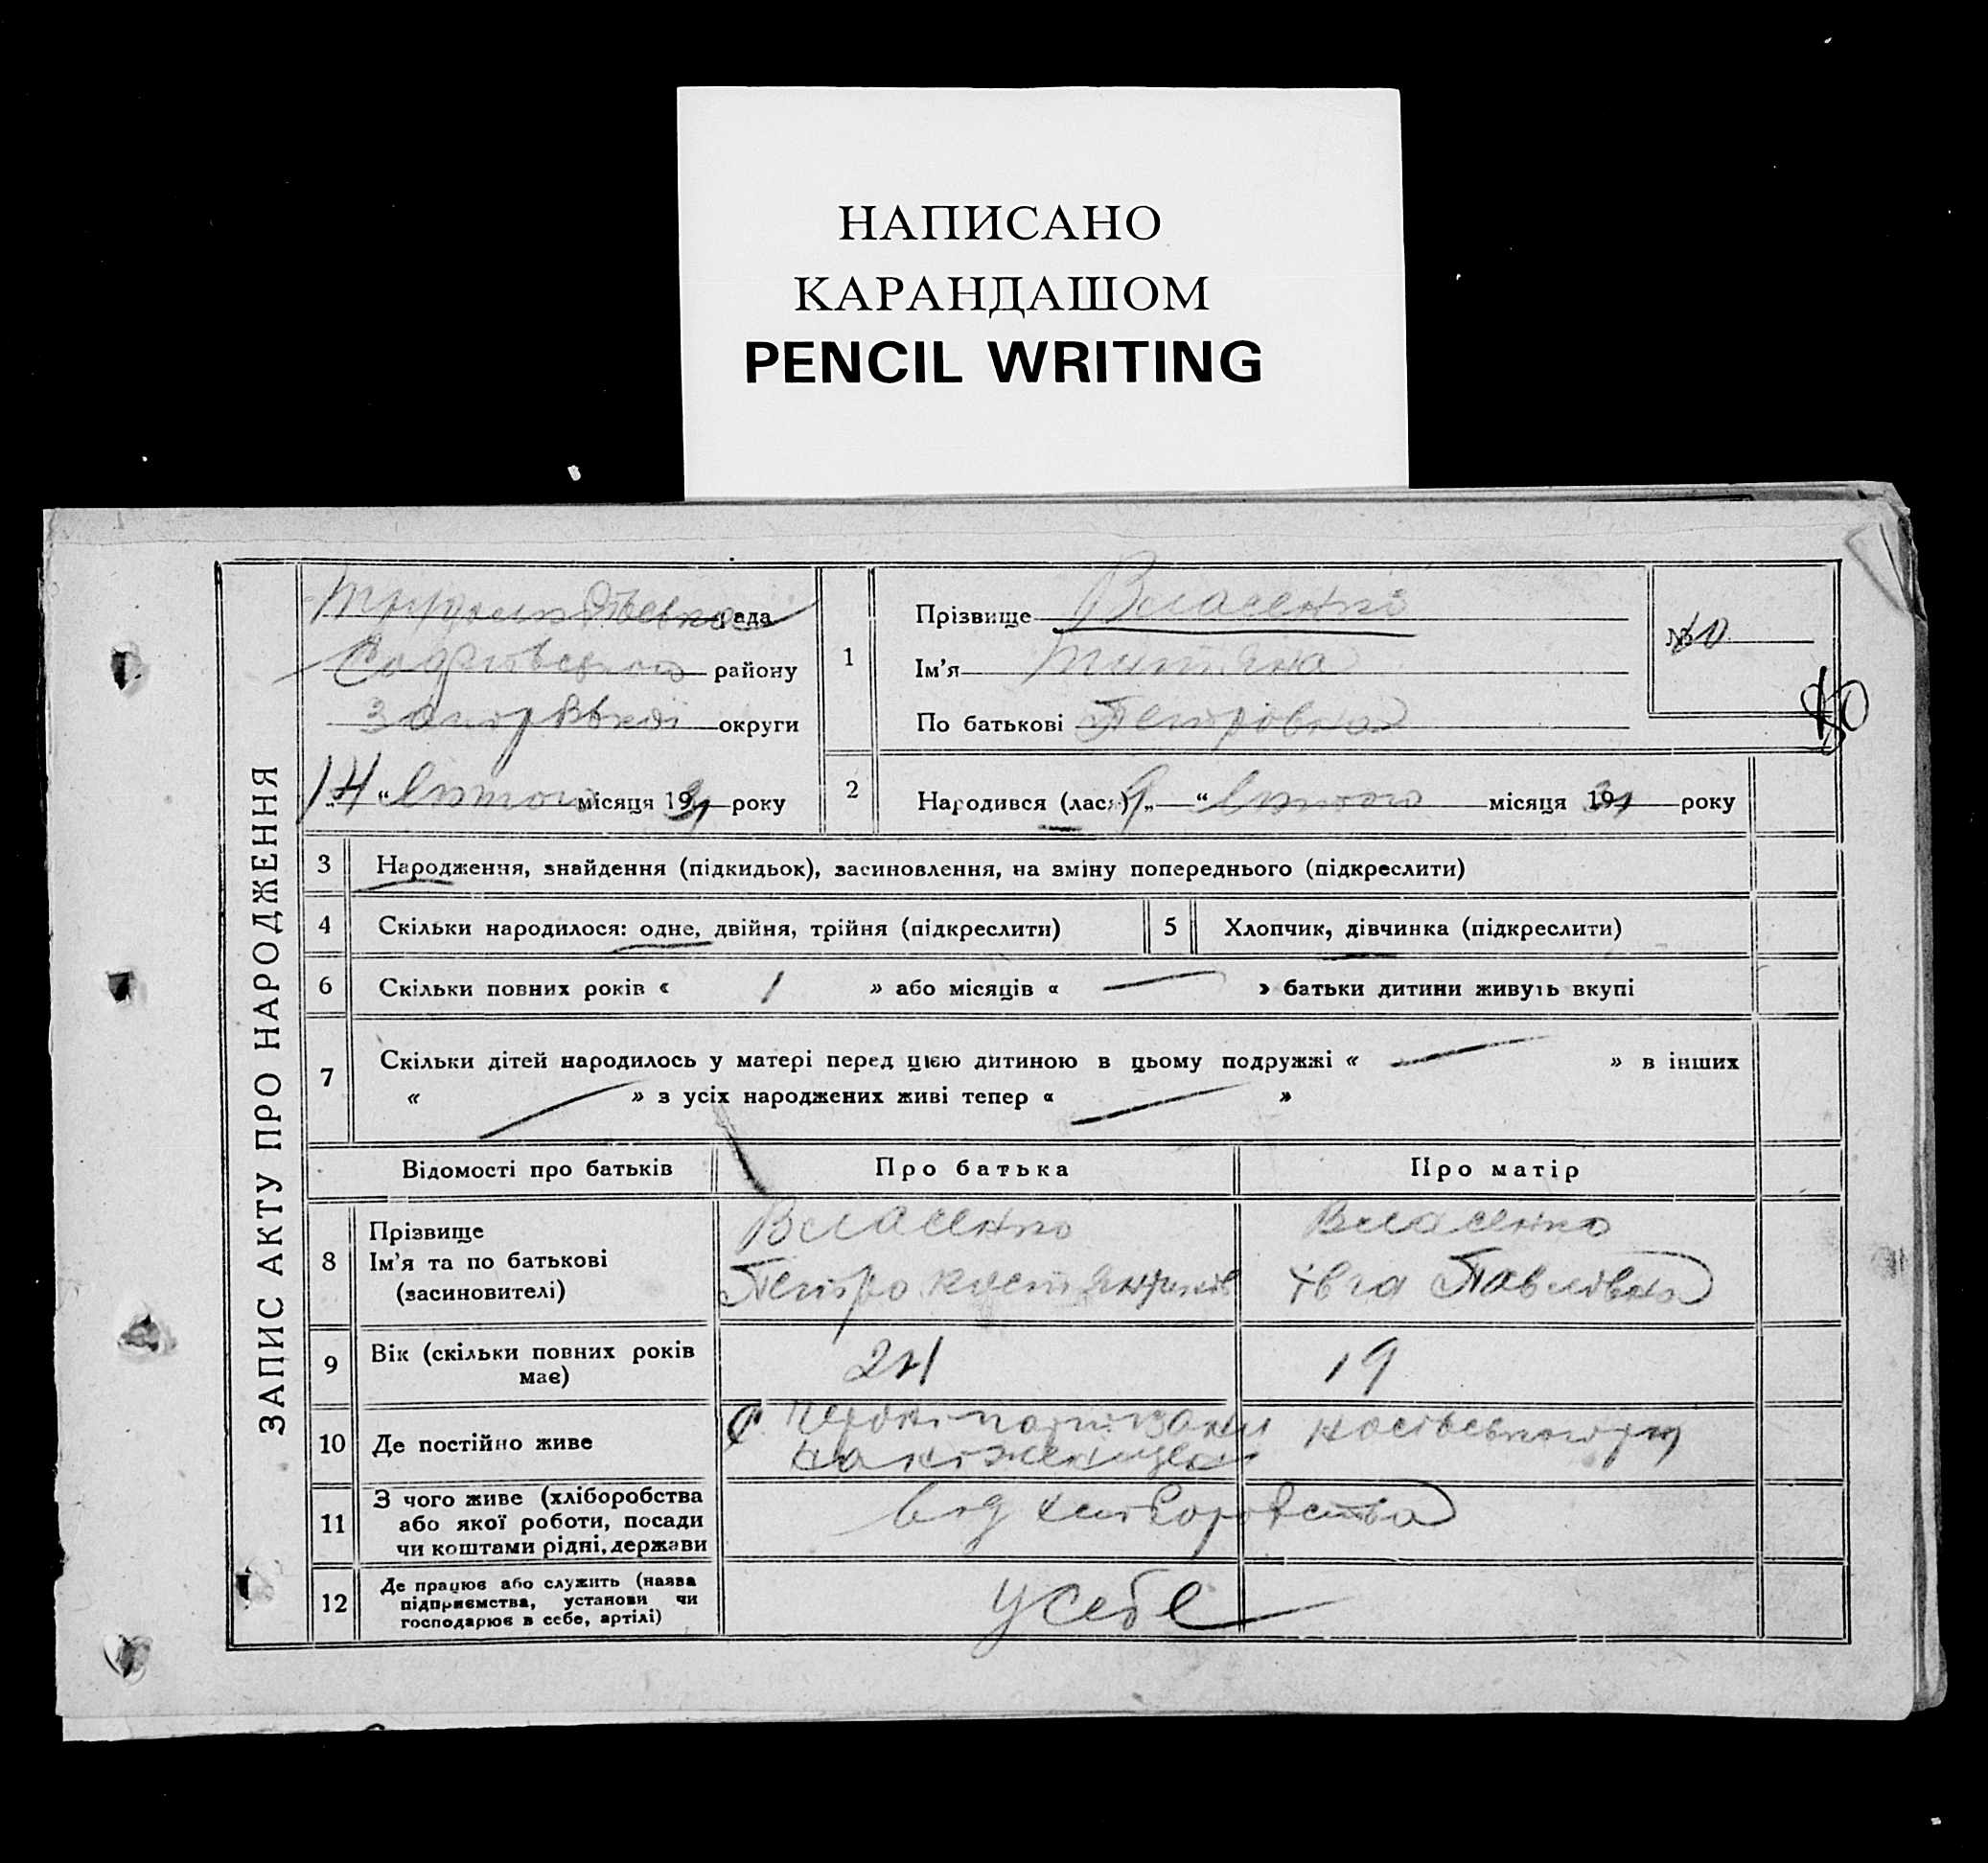 НАПИСАНО
КАРАНДАШОМ
PENCIL WRITING
ЗАПИС АКТУ ПРО НАРОДЖЕННЯ
рада
району
округи
14 “ Лютого місяця 1931 року
1
Прізвище Власенко
Ім'я Титяна
По батькові Петровна
№ 10
80
2
Народився (лася) „9 “ Лютого місяця 1931 року
3 Народження, знайдення (підкидьок), засиновлення, на зміну попереднього (підкреслити)
4 Скільки народилося: одне, двійня, трійня (підкреслити)
5 Хлопчик, дівчинка (підкреслити)
6 Скільки повних років « 1 » або місяців « — » батьки дитини живуть вкупі
7 Скільки дітей народилось у матері перед цією дитиною в цьому подружжі « — » в інших
« — » з усіх народжених живі тепер « — »
Відомості про батьків
Про батька
Про матір
8 Прізвище
Ім'я та по батькові
(засиновителі)
Власенко
Петро
Власенко
Івга Павлівна
9 Вік (скільки повних років
має)
24
19
10 Де постійно живе
с.
11 З чого живе (хліборобства
або якої роботи, посади
чи коштами рідні, держави
від хліборобства
12 Де працює або служить (назва
підприємства, установи чи
господарює в себе, артілі)
У себе